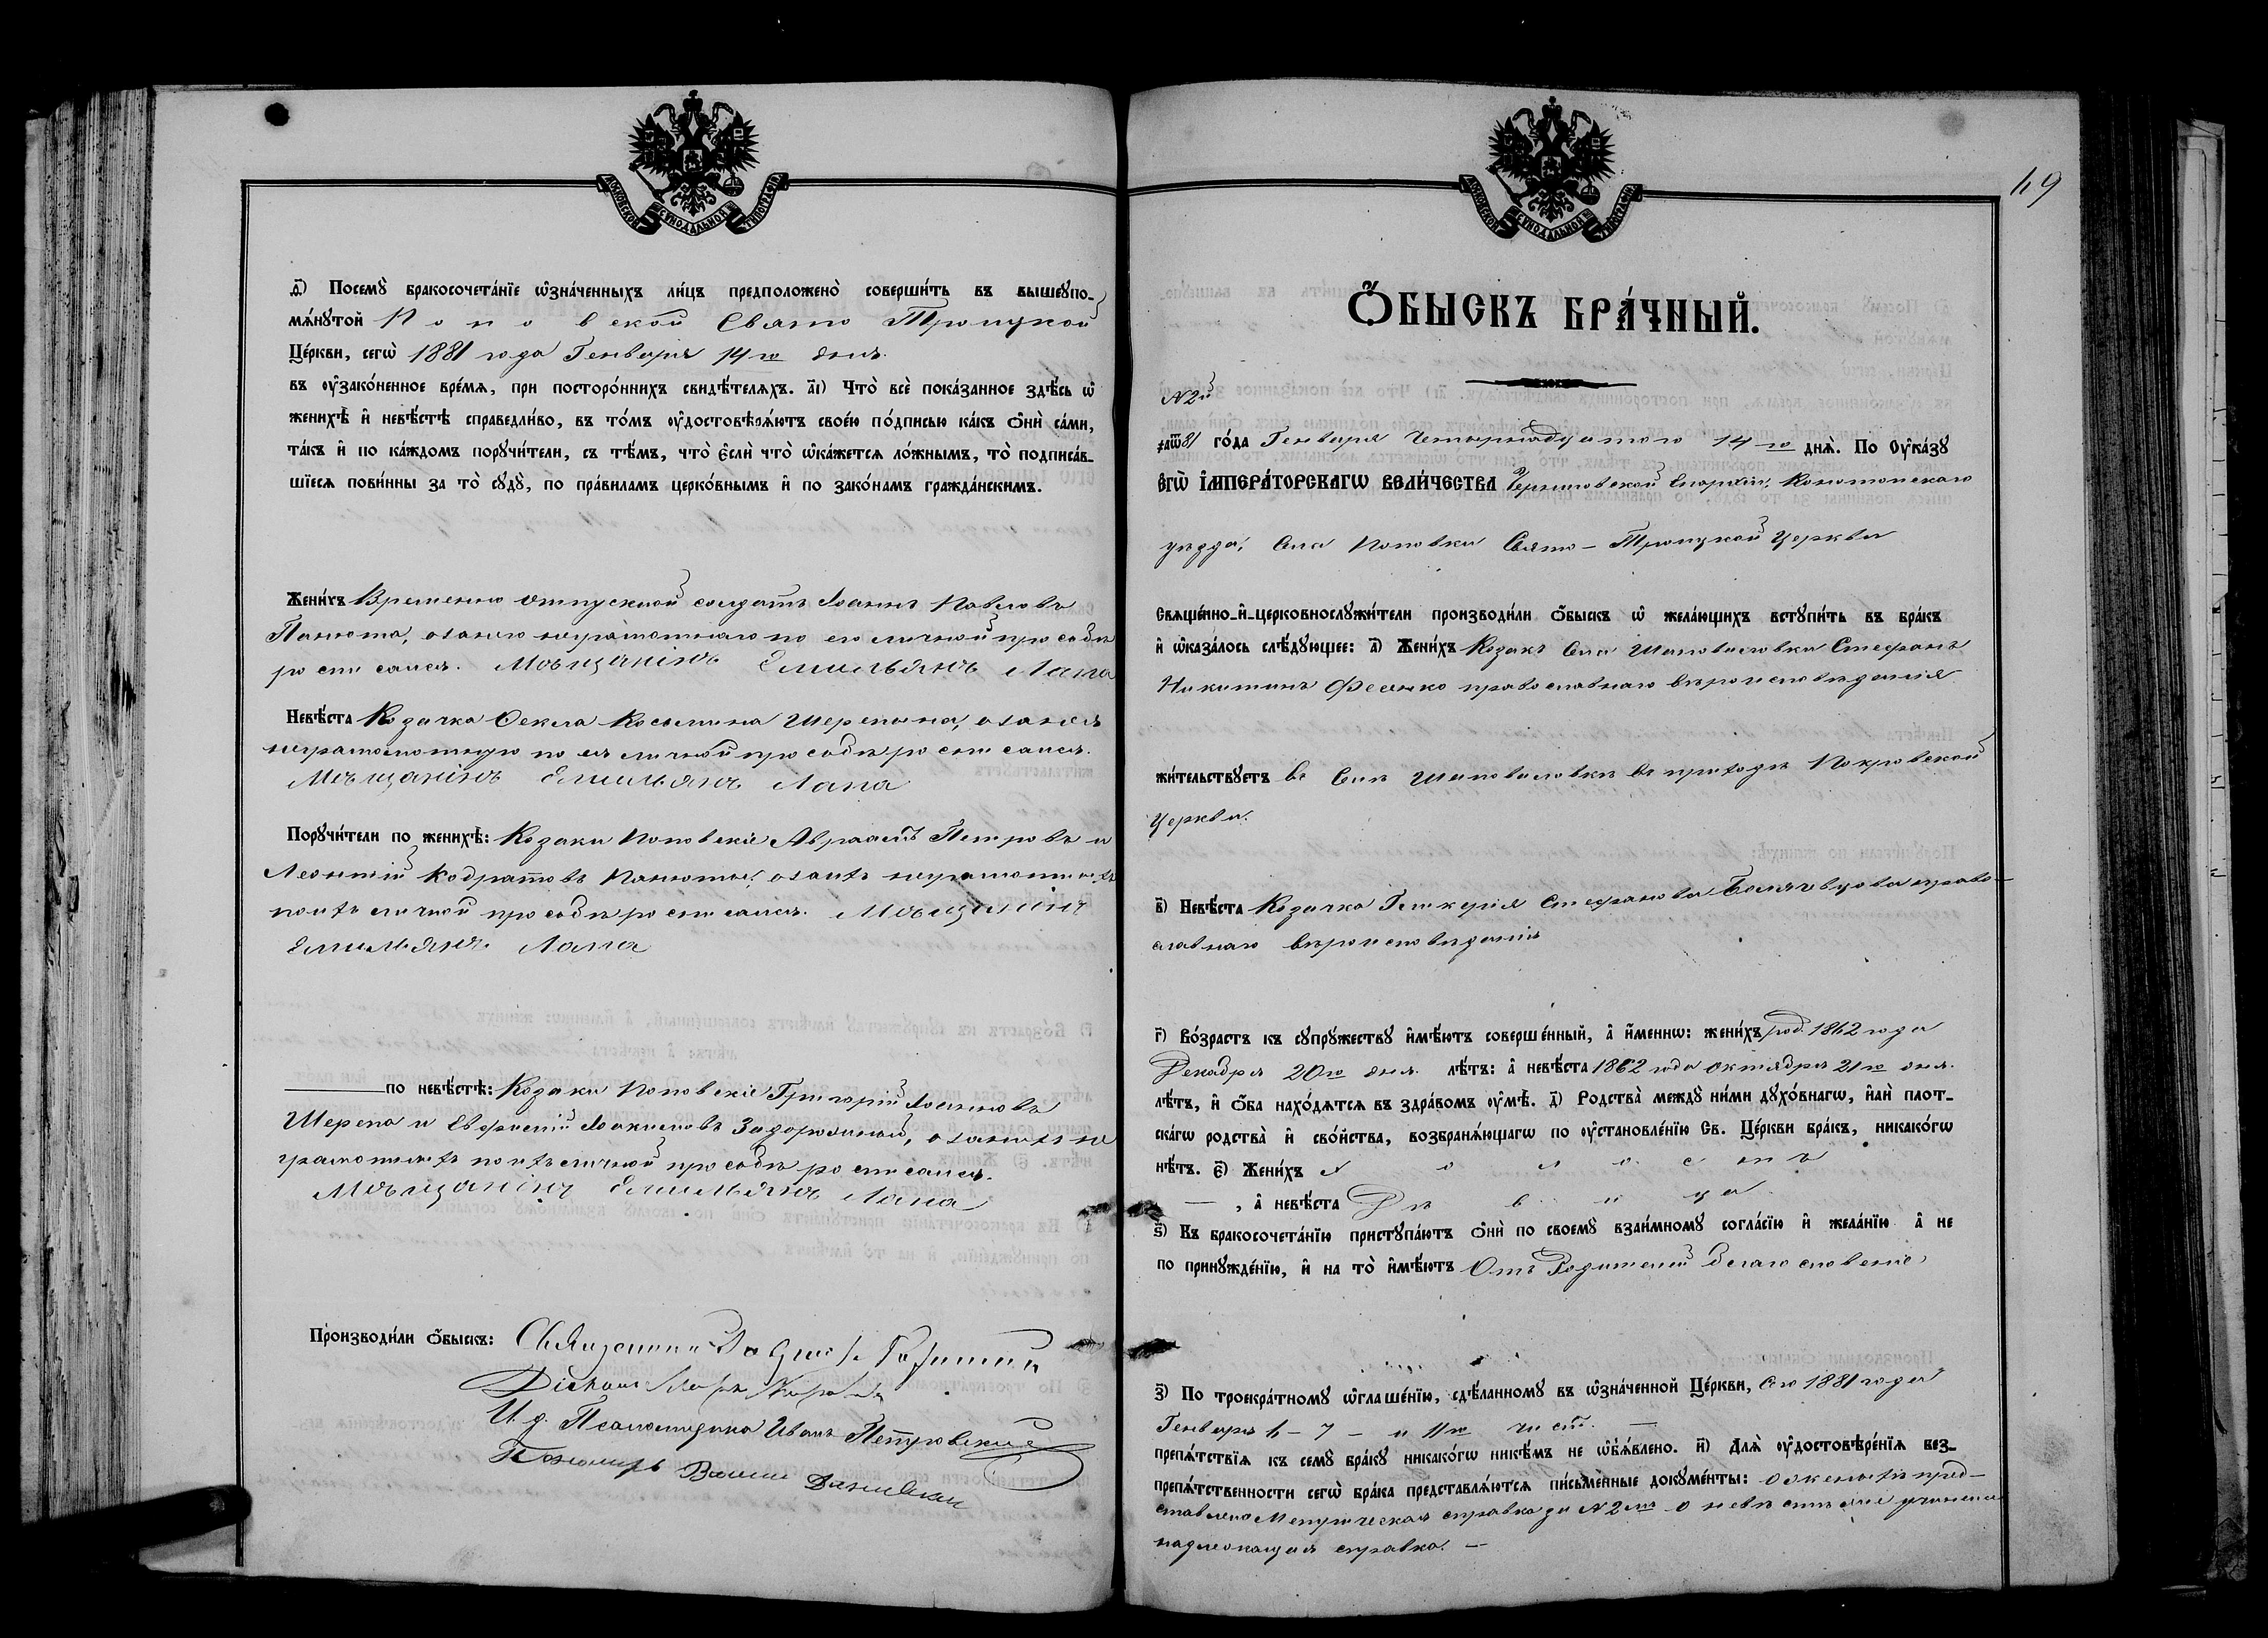 МОСКОВСКОЙ СѴНОДАЛЬНОЙ ТИПОГРАФІИ
Посемꙋ̀ бракосочета́нїе ѡ҆зна́ченныхъ ли́цъ предположено̀ соверши́ть въ вышеꙋпо-
мѧ́нꙋтой Поповской Свято Троицкой
Це́ркви, сегѡ̀ 1881 года Генваря 14го дня.
въ ᲂу҆зако́ненное вре́мѧ, при посторо́ннихъ свидѣ́телѧхъ. а҃і) Что̀ всѐ пока́занное здѣ́сь ѡ҆
женихѣ̀ и҆ невѣ́стѣ справедли́во, въ то́мъ ᲂу҆достовѣрѧ́ютъ свое́ю по́дписью ка́къ ѻ҆нѝ са́ми,
та́къ и҆ по ка́ждомъ порꙋчи́тели, съ тѣ́мъ, что̀ є҆́сли что̀ ѡ҆ка́жетсѧ ло́жнымъ, то̀ подписа́в-
шїесѧ пови́нны за то̀ сꙋдꙋ̀, по пра́виламъ церко́внымъ и҆ по зако́намъ гражда́нскимъ.
Жени́хъ Временно отпускной солдатъ Іоаннъ Павловъ
Панюта, а за него неграмотнаго по его личной прозьбѣ
росписался. Мѣщанінъ Емильянъ Лапа
Невѣ́ста Козачка Ѳекла Косьмина Шерепина, а за нея
неграмотную по ея личной прозьбѣ росписался.
Мѣщанінъ Емильянъ Лапа
Порꙋчи́тели по женихѣ̀: Козаки Поповскіе Авраамъ Петровъ и
Леонтій Кодратовъ Панюты, а за нихъ неграмотныхъ
по ихъ личной прозьбѣ росписался. Мѣщанінъ
Емильянъ Лапа
по невѣ́стѣ: Козаки Поповскіе Григорій Іоанновъ
Шерепа и Евфимій Іоакимовъ Задорожный, а за нихъ не
грамотныхъ по ихъ личной прозьбѣ росписался.
Мѣщанінъ Емильянъ Лапа
Производи́ли ѻ҆́быскъ: Священникъ
Діаконъ
И. д. Псаломщика Иванъ Петровскій
Пономарь
49
МОСКОВСКОЙ СѴНОДАЛЬНОЙ ТИПОГРАФІИ
Ѻ҆́БЫСКЪ БРА́ЧНЫЙ.
№ 2й
҂аѿ81 го́да Генваря Четырнадцатого 14го днѧ̀. По Оу҆ка́зꙋ
Є҆гѡ̀ І҆МПЕРА́ТОРСКАГѠ ВЕЛИ́ЧЕСТВА Черниговской Епархіи, Конотопскаго
уѣзда, Села Поповки Свято-Троицкой Церкви
Свѧще́нно-и҆-церковнослꙋжи́тели производи́ли ѻ҆́быскъ ѡ҆ жела́ющихъ встꙋпи́ть въ бра́къ
и҆ ѡ҆каза́лось слѣ́дꙋющее: а҃) Жени́хъ Козакъ Села Шаповаловки Стефанъ
Никитинъ Фесенко православнаго вѣроисповѣданія
жи́тельствꙋетъ въ Селѣ Шаповаловкѣ въ приходѣ Покровской
Церкви.
в҃) Невѣ́ста Козачка Гликерія Стефанова право-
славнаго вѣроисповѣданія
г҃) Во́зрастъ къ сꙋпрꙋ́жествꙋ и҆мѣ́ютъ соверше́нный, а҆ и҆́меннѡ: жени́хъ род. 1862 года
Декабря 20го дня. лѣ́тъ: а҆ невѣ́ста 1862 года октября 21го дня.
лѣ́тъ, и҆ ѻ҆́ба нахо́дѧтсѧ въ здра́вомъ ᲂу҆мѣ̀. д҃) Родства̀ междꙋ̀ ни́ми дꙋхо́внагѡ, и҆лѝ плот-
ска́гѡ родства̀ и҆ сво́йства, возбранѧ́ющагѡ по ᲂу҆становле́нїю Св. Це́ркви бра́къ, никако́гѡ
нѣ́тъ. є҃) Жени́хъ холостъ
—, а҆ невѣ́ста Дѣвица
ѕ҃) Къ бракосочета́нїю приступа́ютъ ѻ҆нѝ по своемꙋ̀ взаи́мномꙋ согла́сїю и҆ жела́нїю а҆ не
по принꙋжде́нїю, и҆ на то̀ и҆мѣ́ютъ Отъ Родителей благословеніе
з҃) По троекра́тномꙋ ѡ҆глаше́нїю, сдѣ́ланномꙋ въ ѡ҆зна́ченной Це́ркви, сего 1881 года
Генваря 6-7- и 11го числъ. —
препѧ́тствїѧ къ семꙋ̀ бра́кꙋ никако́гѡ никѣ́мъ не ѡ҆б̾ѧ́влено. и҃) Длѧ̀ ᲂу҆достовѣре́нїѧ без-
препѧ́тственности сегѡ̀ бра́ка представлѧ́ютсѧ пи́сьменные докꙋме́нты: о женихѣ пред-
ставлена Метрическая справка за № 2мъ о невѣстѣ учинена
надлежащая справка. —